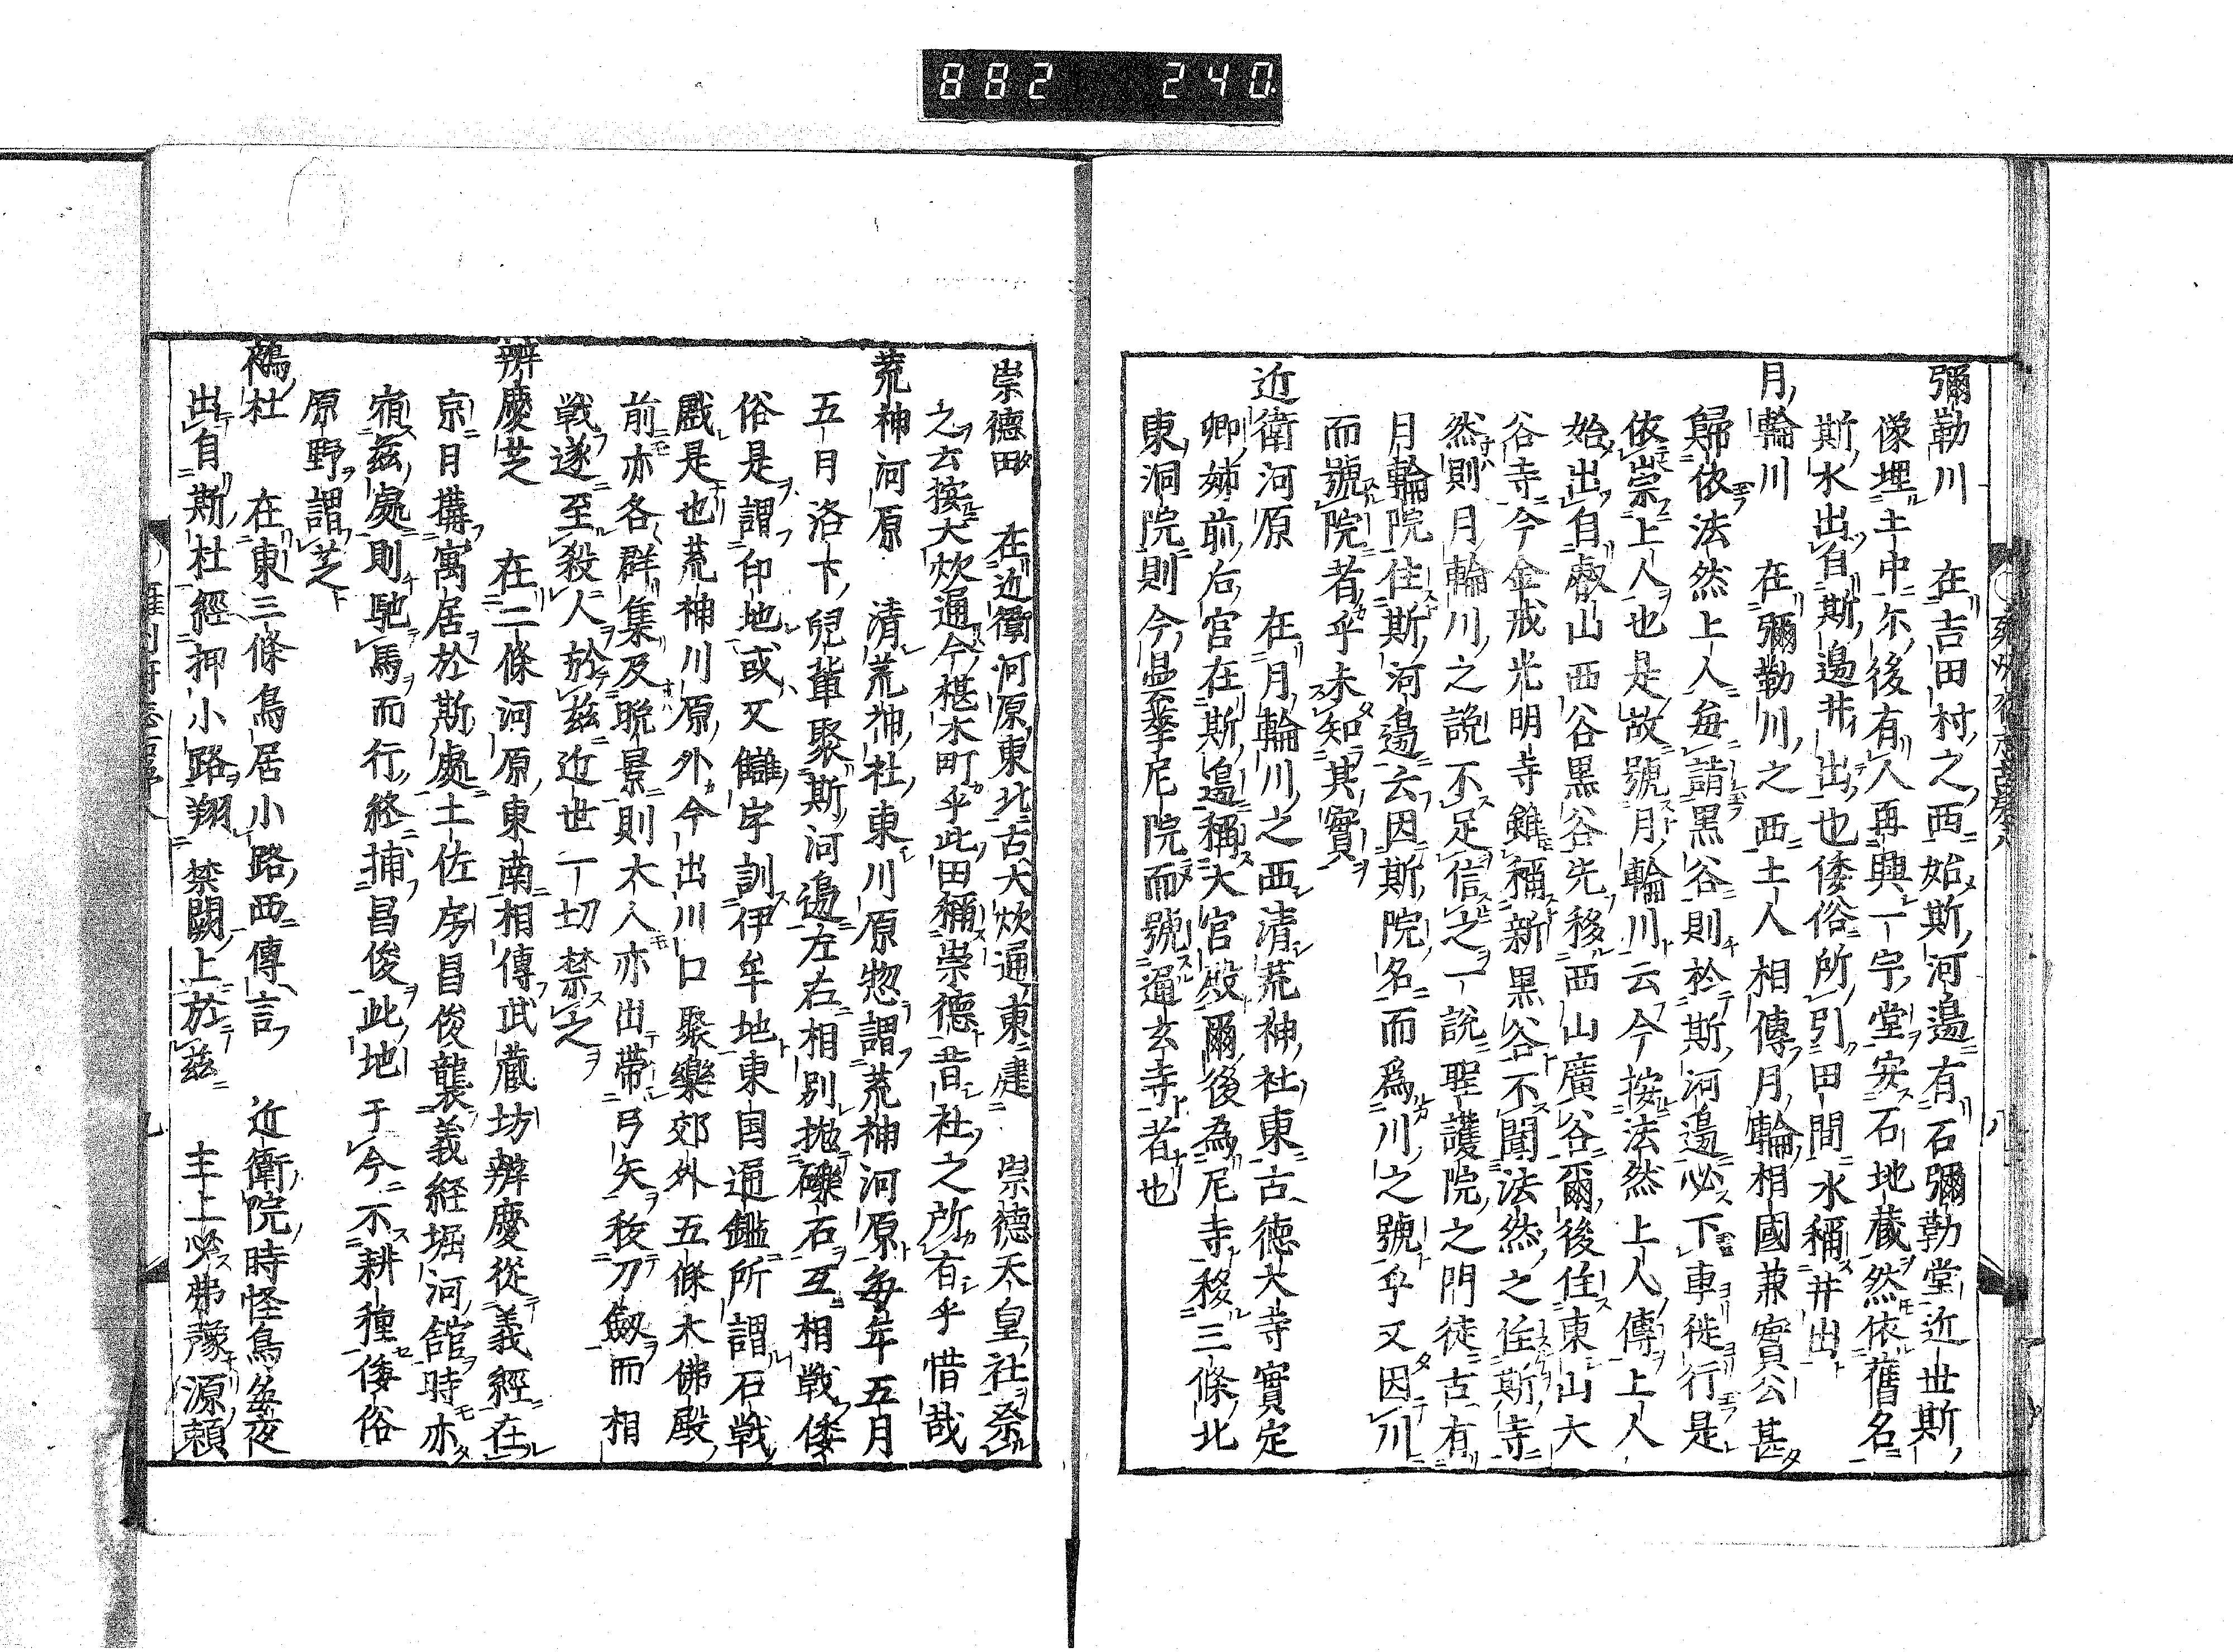 882 240
彌勒川 在吉田村之西始斯河邉有石彌勒堂近世斯
像埋土中尓後有人再興一宇堂安石地藏然依舊名
斯水出自斯邉井出也倭俗所引田間水稱井出
月輪川 在彌勒川之西土人相傳月輪相國兼實公甚
歸依法然上人毎請黒谷則於斯河邉必下車徙行是
依崇上人也是故號月輪川云今按法然上人傳上人
始出自叡山西谷黒谷先移西山廣谷爾後住東山大
谷寺今金戒光明寺雖稱新黒谷不聞法然之住斯寺
然則月輪川之説不足信之一説聖護院之門徒古有
月輪院住斯河邉云因斯院名而爲川之號乎又因川
而號院者乎未知其實
近衛河原 在月輪川之西清荒神社東古徳大寺實定
卿姉前后宮在斯邉稱大宮殿爾後為尼寺移三條北
東洞院則今曇華尼院而號通玄寺者也
崇德田 在近衛河原東北古大炊通東建 崇德天皇社祭
之云按大炊通今椹木町乎此田稱崇德昔社之所有乎惜哉
荒神河原 清荒神社東川原惣謂荒神河原毎年五月
五月洛下兒輩聚斯河邉左右相別抛礫石互相戰倭
俗是謂印地或又讎字訓伊牟地東国通鑑所謂石戰
戲是也荒神川原外今出川口聚樂郊外五條大佛殿
前亦各群集及晩景則大人亦出帶弓矢秡刀劔而相
戰遂至殺人於茲近世一切禁之
辨慶芝 在二條河原東南相傳武藏坊辨慶從義經在
京日搆寓居於斯處土佐房昌俊襲義経堀河舘時亦
宿茲處則馳馬而行終捕昌俊此地于今不耕種倭俗
原野謂芝
鵺杜 在東三條鳥居小路西傳言 近衛院時怪鳥毎夜
出自斯杜經押小路翔 禁闕上於茲 主上必弗豫源頼